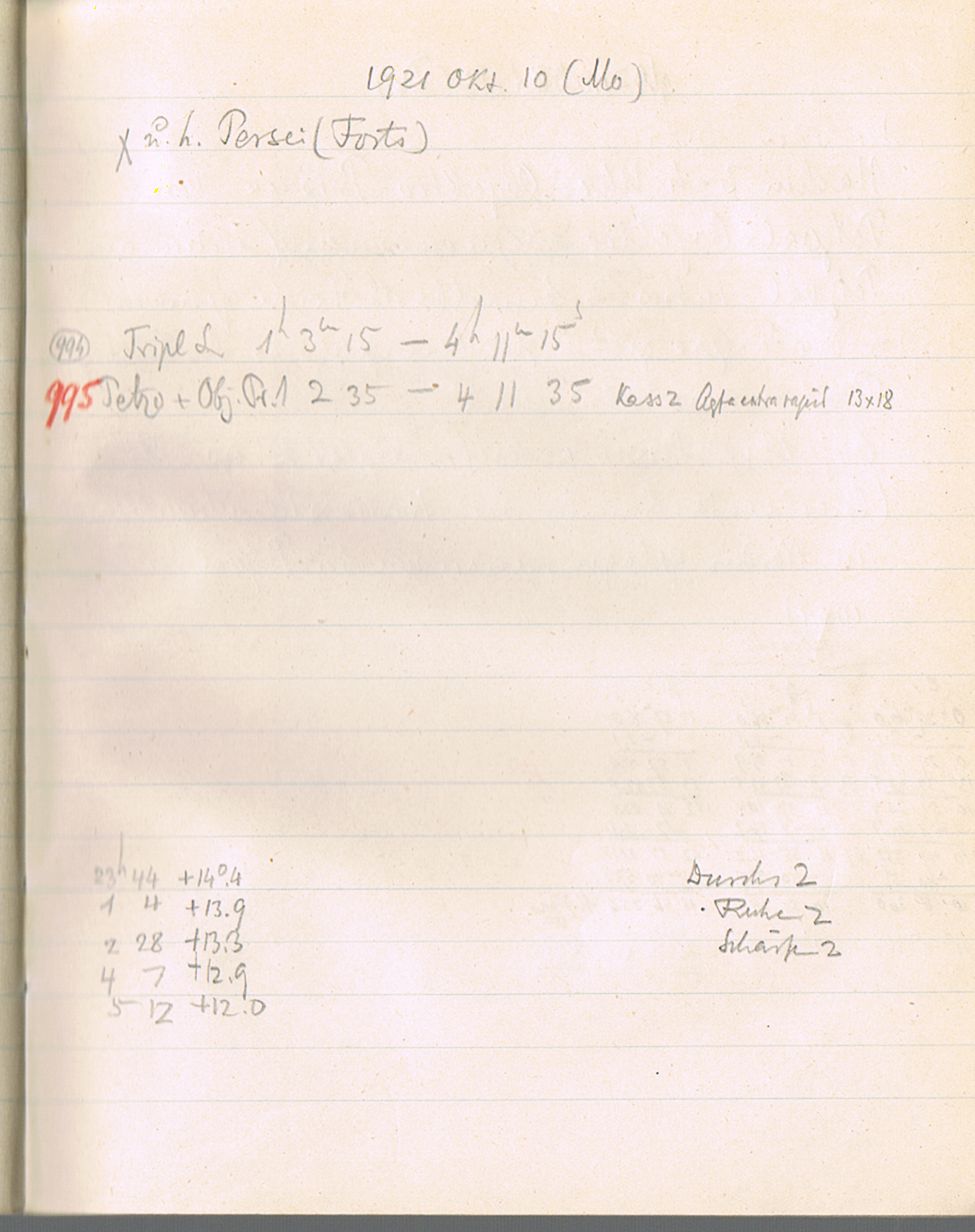 1921 Okt. 10 (Mo)
χ u. h. Persei (Forts)
994 Tripl 1h 3m 15 — 4h 11m 15s
995 Tetro + Obj. Pr. 1 2 35 — 4 11 35 Kass 2 Agfa extrarapid 13x18
23h 44 +14°.4
1 4 +13.9
2 28 +13.3
4 7 +12.9
5 12 +12.0
Durchs 2
Ruhe 2
Schärfe 2